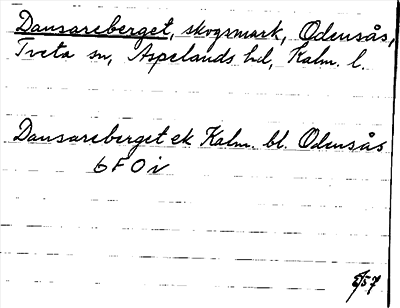 Dansareberget, skogsmark, Odensås,
Tveta sn, Aspelands hd, Kalm. l.
Dansareberget ek Kalm. bl. Odensås
6F0i
5/57